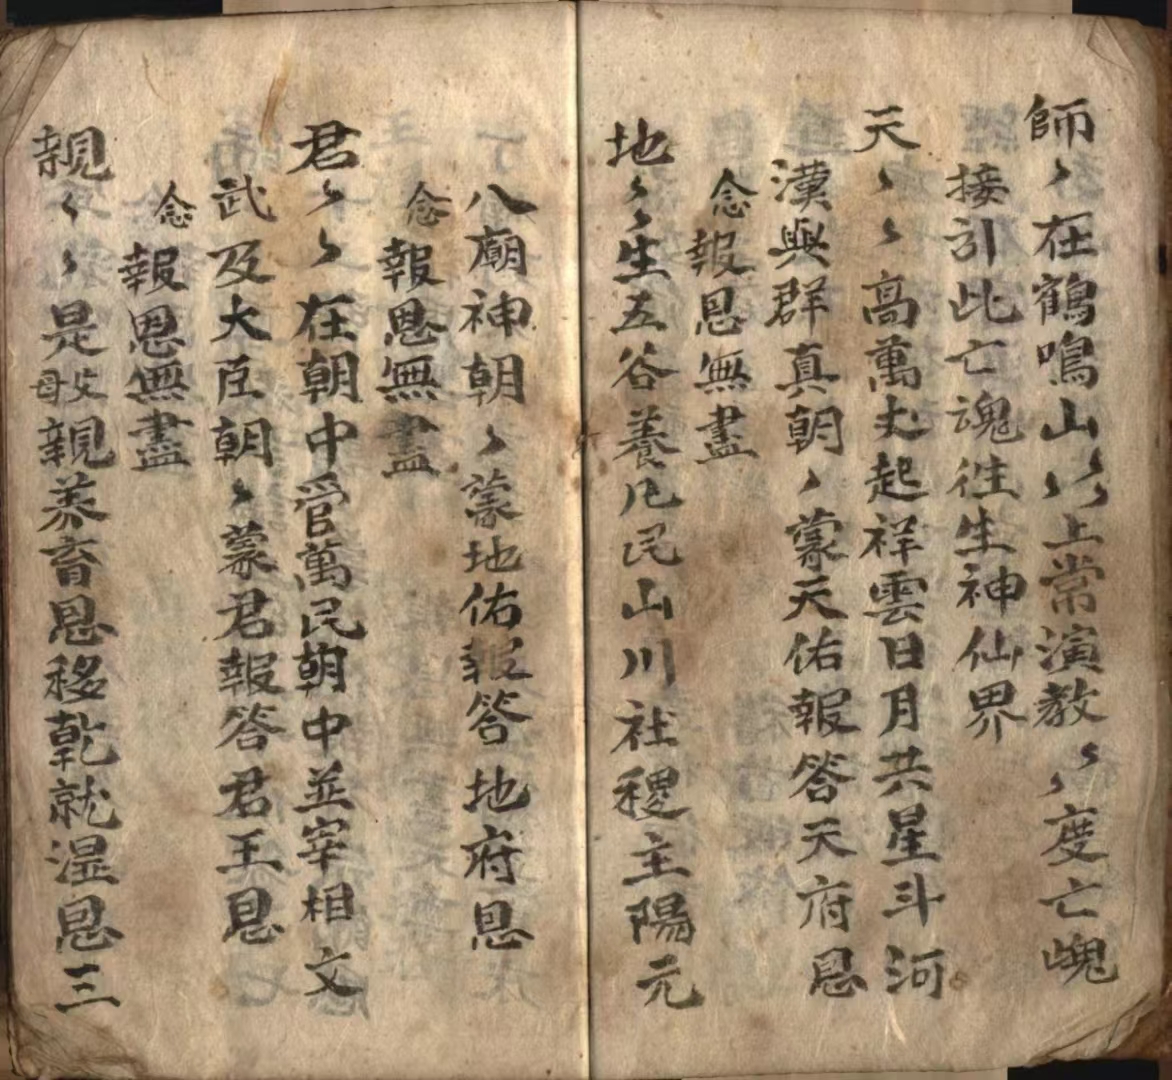 師〻在鶴鳴山〻〻上常演教〻〻度亡魂
接引此亡魂徃生神仙界
天〻〻高萬丈起祥雲日月共星斗河
漢與群真朝〻蒙天佑報答天府恩
念報恩無盡
地〻〻生五谷養凡民山川社稷主陽元
八廟神朝〻蒙地佑報答地府恩
念報恩無盡
君〻〻在朝中管萬民朝中並宰相文
武及大臣朝〻蒙君報答君王恩
念報恩無盡
親〻〻是父母親养育恩移乾就湿恩三